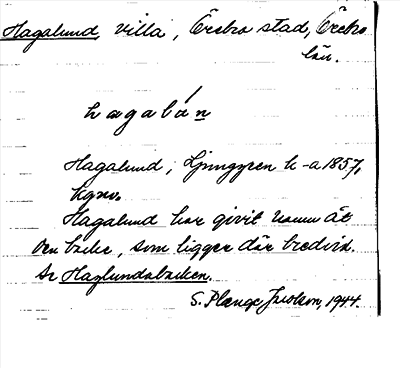 Hagalund, villa, Örebro stad, Örebro
län.
hagalún
Hagalund, Ljunggren h-a 1857,
kgno.
Hagalund har givit namn åt
den backe, som ligger där bredvid.
Se Haglundsbacken.
S. Plænge Jacobson, 1944.